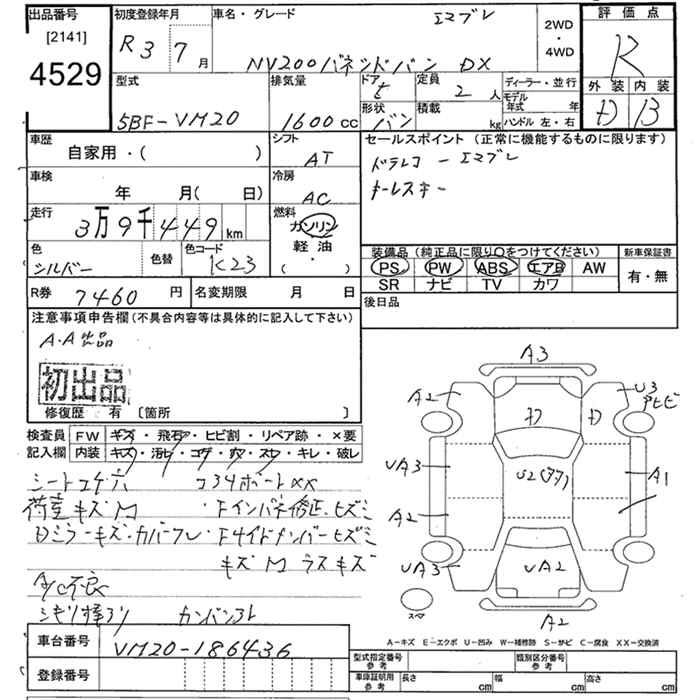 出品番号
[2141]
4529
初度登録年月
R3 7月
車名・グレード
エマブレ
NV200バネットバン DX
2WD
・
4WD
評価点
R
外装 内装
D B
型式
5BF-VM20
排気量
1600cc
ドア
5
定員
2人
形状
バン
積載
kg
ディーラー・並行
モデル年式 年
ハンドル 左・右
車歴
自家用・( )
シフト
AT
車検
年 月( 日)
冷房
AC
走行
3万9千449km
燃料
ガソリン
軽油
( ・ )
色
シルバー
色替
色コード
K23
セールスポイント (正常に機能するものに限ります)
ドラレコ ー エマブレ
キーレスキー
装備品 (純正品に限り○をつけてください)
PS PW ABS エアB AW
SR ナビ TV カワ
新車保証書
有・無
R券 7460円
名変期限 月 日
後日品
注意事項申告欄 (不具合内容等は具体的に記入して下さい)
A・A出品
初出品
修復歴 有 [箇所 ]
検査員 FW キズ・飛石・ヒビ割・リペア跡・×要
記入欄 内装 キズ・汚レ・コゲ・穴・スレ・キレ・破レ
シートコゲ穴 コアサポートXX
荷室キズM ・Fインパネ修正、ヒズミ
Dミラーキズ・カバーワレ ・Fサイドメンバーヒズミ
キズM ラスキズ
A/C不良
カンバン
車台番号 VM20-186436
登録番号
A3
A2
U3
アヒビ
D
D
UA3
U2(アタリ)
A1
A2
UA3
UA2
スペア
A2
A-キズ E-エクボ U-凹み W-補修跡 S-サビ C-腐食 XX-交換済
型式指定番号
参考
類別区分番号
参考
車庫証明用
参考
長さ cm
幅 cm
高さ cm